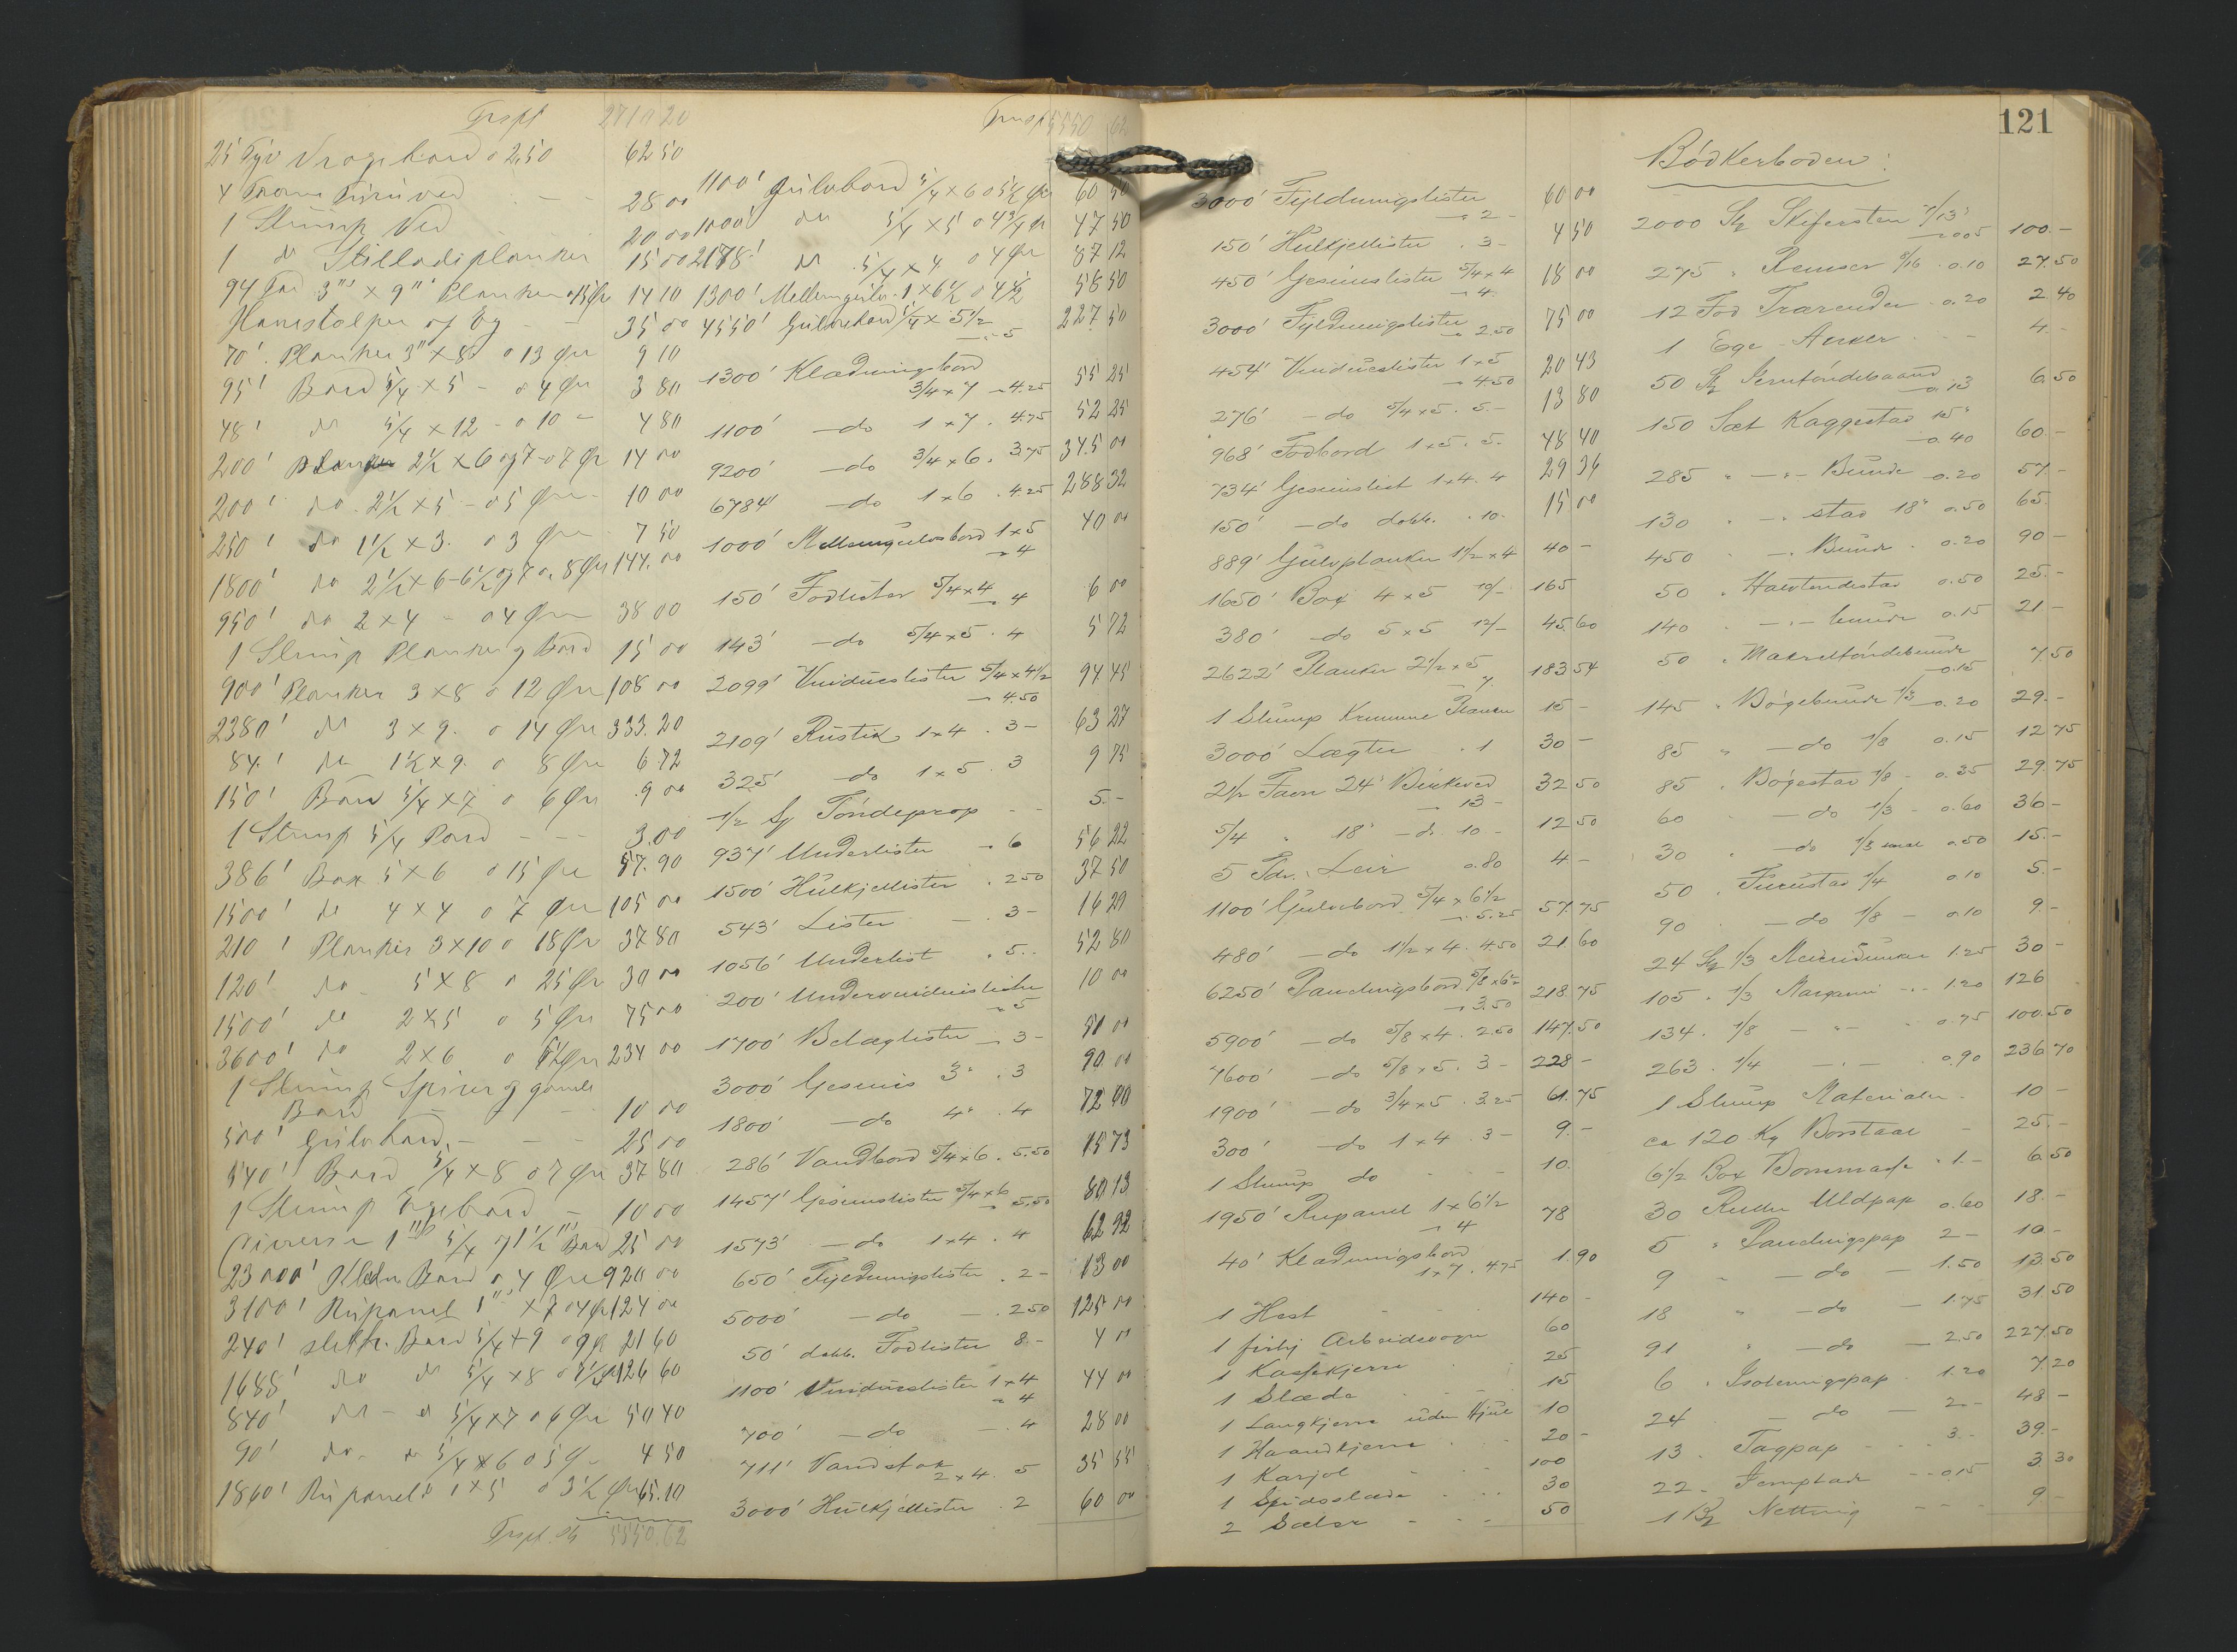 Trspt 2710 20
25 Tylv Vragebord a 2,50 62 50
4 Favne Furuved - - 28 00
1 Slump Ved 20 00
1 do Stilladsplanker 15 00
94 Fod 3" x 9" Planker a 15 Øre 14 10
Havestolper af Eg - - 35 00
70' Planker 3" x 8 a 13 Øre 9 10
95' Bord 5/4 x 5 - a 4 Øre 3 80
48' do 5/4 x 12 - a 10 - 4 80
200' Planker 2½ x 6 og 7 a 7 Ør 14 00
200' do 2½ x 5 - a 5 Øre 10 00
250' do 1½ x 3. a 3 Øre 7 50
1800' do 2½ x 6-6½ og 7 a 8 Øre 144.00
950' do 2 x 4 - a 4 Øre 38 00
1 Slump Planker og Bord 15 00
900' Planker 3 x 8 a 12 Øre 108 00
2380' do 3 x 9. a 14 Øre 333.20
84' do 1½ x 9. a 8 Øre 6.72
150' Bord 5/4 x 7 a 6 Øre 9 00
1 Slump 5/4 Bord - - - 3.00
386' Box 5 x 6 a 15 Øre 57.90
1500' do 4 x 4 a 7 Øre 105 00
210' Planker 3 x 10 a 18 Øre 37 80
120' do - 5 x 8 a 25 Øre 30 00
1500' do 2 x 5 a 5 Øre 75 00
3600' do 2 x 6 a 6½ Øre 234 00
1 Slump Spirer og gamle
Bord - - 10 00
500' Gulvbord - - - 25 00
540' Bord 5/4 x 8 a 7 Øre 37 80
1 Slump Bord - 10 00
Diverse 1" 5/4 og 1½" Bord 25 00
23000' Bord a 4 Øre 920 00
3100' Rupanel 1" x 7 a 4 Øre 124 00
240' Bord 5/4 x 9 a 9 Ø 21 60
1688' do do 5/4 x 8 a 7½ Ø 126 60
840' do - do 5/4 x 7 a 6 Øre 50 40
90' do - do 5/4 x 6 a 5 Ø 4 50
1860' Rupanel 1 x 5 a 3½ Øre 65.10
Trspt. 5550.62
Trnsp 5550 62
1100' Gulvbord 5/4 x 6 a 5½ Øre 60 50
1000' do 5/4 x 5 a 4¾ Ør 47 50
2178' do 5/4 x 4 a 4 Øre 87 12
1300' Mellemgulv 1 x 6½ a 4½ 58 50
4550' Gulvebord 5/4 x 5½
- 5 227 50
1300' Klædningsbord
3/4 x 7 - 4.25 55 25
1100' - do 1 x 7 . 4.75 52 25
9200' - do 3/4 x 6 . 3.75 345 00
6784' - do 1 x 6 . 4.25 288 32
1000' Mellemgulvsbord 1 x 5
- 4 40 00
150' Fodlister 5/4 x 4
- 4 6 00
143' - do 5/4 x 5 . 4 5 72
2099' Vindueslister 5/4 x 4½
- 4.50 94 45
2109' Rustik 1 x 4 . 3 - 63 27
325' - do 1 x 5 . 3 9 75
½ Sk Töndeprop - - 5. -
937' Underlister - 6 56 22
1500' Hulkjellister . 2 50 37 50
543' Lister - . 3 - 16 29
1056' Underlist . 5 .. 52 80
200' Undervindueslister
- 5 10 00
1700' Belæglister - 3 - 51 00
3000' Gesims 3" . 3 90 00
1800' - do 4" . 4 72 00
286' Vandbord 5/4 x 6 . 5.50 15 73
1457' Gesimslister 5/4 x 6
- 5.50 80 13
1573' - do 1 x 4 . 4 62 92
650' Fyldningslister . 2 - 13 00
5000' - do - . 2 50 125 00
50' dobb. Fodlister 8. - 4 00
1100' Vinduelister 1 x 4
- 4 44 00
700' - do - . 4 28 00
711' Vandstok
2 x 4 . 5 35 55
3000' Hulkjellister . 2 60 00
121
3000' Fyldningslister
- 2 - 60 00
150' Hulkjellister . 3 - 4 50
450' Gesimslister 5/4 x 4
- 4. 18 00
3000' Fyldningslister
- 2.50 75 00
454' Vindueslister 1 x 5
- 4.50 20 43
276' - do 5/4 x 5 . 5. - 13 80
968' Fodbord 1 x 5 . 5. 48 40
734' Gesimslist 1 x 4 . 4 29 36
150' - do dobb. . 10. 15 00
889' Gulvplanker 1½ x 4 40 -
1650' Box 4 x 5 10/- 165
380' - do 5 x 5 12/- 45.60
2622' Planker 2½ x 5
- 7. 183 54
1 Slump Krumme Planker 15 -
3000' Lægter . 1 30 -
2½ Favn 24" Birkeved
- 13 - 32 50
5/4 " 18" - do . 10 - 12 50
5 Tdr. Leir 0.80 4 -
1100' Gulvbord 5/4 x 6½
- 5.25 57.75
480' - do 1½ x 4 . 4.50 21.60
6250' Pandingsbord 5/8 x 6½
- 3.50 218.75
5900' - do 5/8 x 4 . 2.50 147.50
7600' - do 5/8 x 5 . 3 - 228 -
1900' - do 3/4 x 5 . 3.25 61.75
300' - do 1 x 4 . 3 - 9. -
1 Slump do - - - 10.
1950' Rupanel 1 x 6½
- 4 78
40' Klædningsbord
1 x 7 . 4.75 1.90
1 Hest - - - 140 -
1 firhj Arbeidsvogn 60
1 Kassekjerre . 25
1 Slæde - - - 15
1 Langkjerre uden Hjul 10
1 Haandkjerre . - - 20 -
1 Karjol - - - 100
1 Spidsslæde - - - 30
2 Sæler - - - 50
Bödkerboden:
2000 Sk Skifersten 7/13"
- 0.05 100. -
275 " Remser 9/16 . 0.10 27.50
12 Fod Trærender . 0.20 2 40
1 Ege - Anker - - 4. -
50 Sk Jerntöndebaand
- 0.13 6.50
150 Sæt Kaggestav 15"
- 0.40 60. -
285 " - " - Bunde 0.20 57. -
130 " - " stav 18" 0.50 65.
450 - " Bunde . 0.20 90 -
50 " Halvtøndestav 0.50 25. -
140 - " - bunde 0.15 21 -
50 " töndebunde
- 0.15 7.50
145 " Bögebunde 1/3 - 0.20 29. -
85 " - do 1/8 0.15 12 75
85 " Bögestav 1/8 - 0.35 29.75
60 - do 1/3 - 0.60 36 -
30 " - do 1/3 smal 0.50 15. -
50 . Furustav 1/4 0.10 5. -
90 - do 1/8 - 0.10 9. -
24 Sk 1/3 1.25 30 -
105 . 1/3 Margarin - .. 1.20 126
134 . 1/8 - " - " 0.75 100.50
263 . 1/4 - . - . 0.90 236.70
1 Slump Materialer . 10 -
ca 120 Kg Borstaal - 25. -
6½ Box Bommasse . 1. - 6.50
30 Ruller Uldpap 0.60 18. -
5 " Pandingspap 2 - 10. -
9 " - do - 1.50 13.50
18 " - do - 1.75 31.50
91 " - do - 2.50 227.50
6 " Isoleringspap . 1.20 7.20
24 - do - 2 - 48 -
13 . Tagpap - - - 3. - 39. -
22 . Jernplade - - 0.15 3.30
1 Netting - - - 9 -